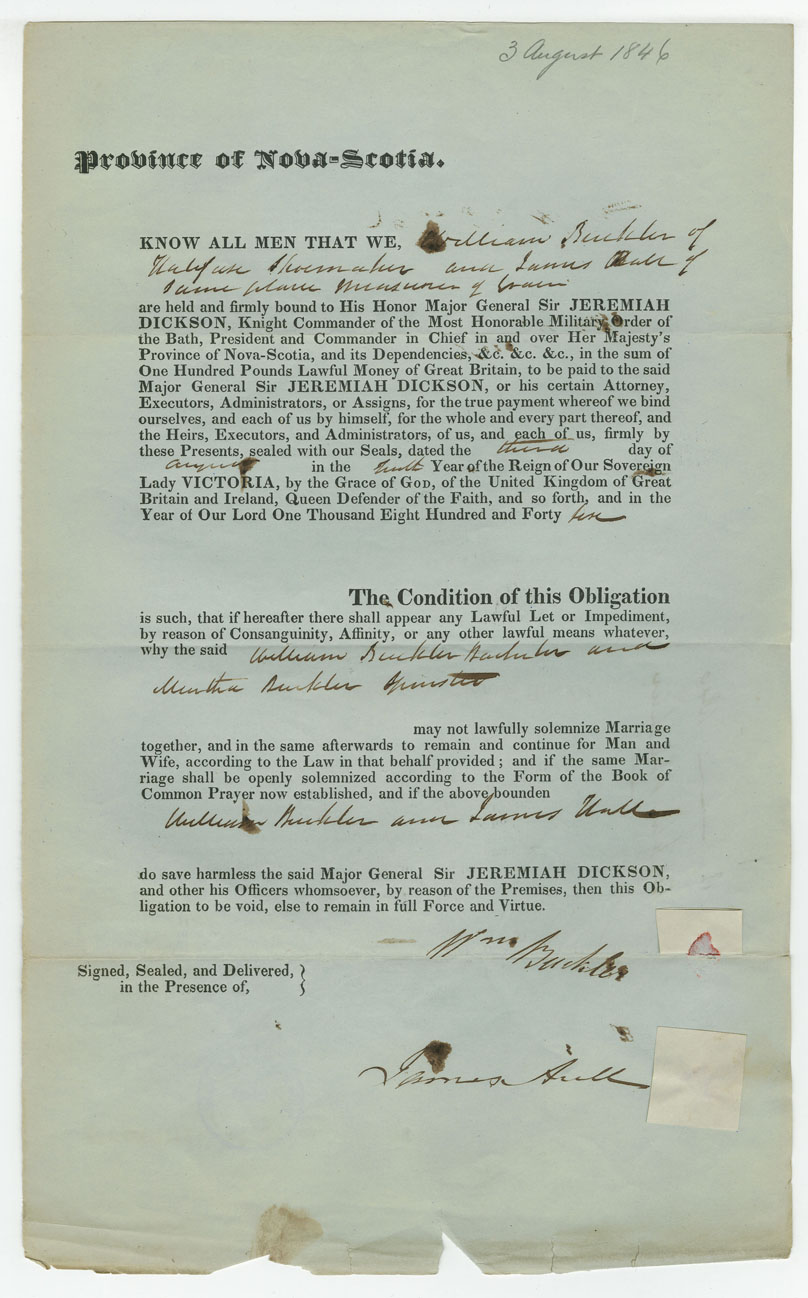 3 August 1846
Province of Nova-Scotia.
KNOW ALL MEN THAT WE, William Buckler of
Halifax Shoemaker and James Hall of
Same place Measurer of Grain
are held and firmly bound to His Honor Major General Sir JEREMIAH
DICKSON, Knight Commander of the Most Honorable Military Order of
the Bath, President and Commander in Chief in and over Her Majesty's
Province of Nova-Scotia, and its Dependencies, &c. &c. &c., in the sum of
One Hundred Pounds Lawful Money of Great Britain, to be paid to the said
Major General Sir JEREMIAH DICKSON, or his certain Attorney,
Executors, Administrators, or Assigns, for the true payment whereof we bind
ourselves, and each of us by himself, for the whole and every part thereof, and
the Heirs, Executors, and Administrators, of us, and each of us, firmly by
these Presents, sealed with our Seals, dated the third day of
August in the tenth Year of the Reign of Our Sovereign
Lady VICTORIA, by the Grace of GOD, of the United Kingdom of Great
Britain and Ireland, Queen Defender of the Faith, and so forth, and in the
Year of Our Lord One Thousand Eight Hundred and Forty six
The Condition of this Obligation
is such, that if hereafter there shall appear any Lawful Let or Impediment,
by reason of Consanguinity, Affinity, or any other lawful means whatever,
why the said William Buckler Bachelor and
Martha Buckler Spinster
may not lawfully solemnize Marriage
together, and in the same afterwards to remain and continue for Man and
Wife, according to the Law in that behalf provided; and if the same Mar-
riage shall be openly solemnized according to the Form of the Book of
Common Prayer now established, and if the above bounden
William Buckler and James Hall
do save harmless the said Major General Sir JEREMIAH DICKSON,
and other his Officers whomsoever, by reason of the Premises, then this Ob-
ligation to be void, else to remain in full Force and Virtue.
Wm Buckler
Signed, Sealed, and Delivered,
in the Presence of,
James Hull